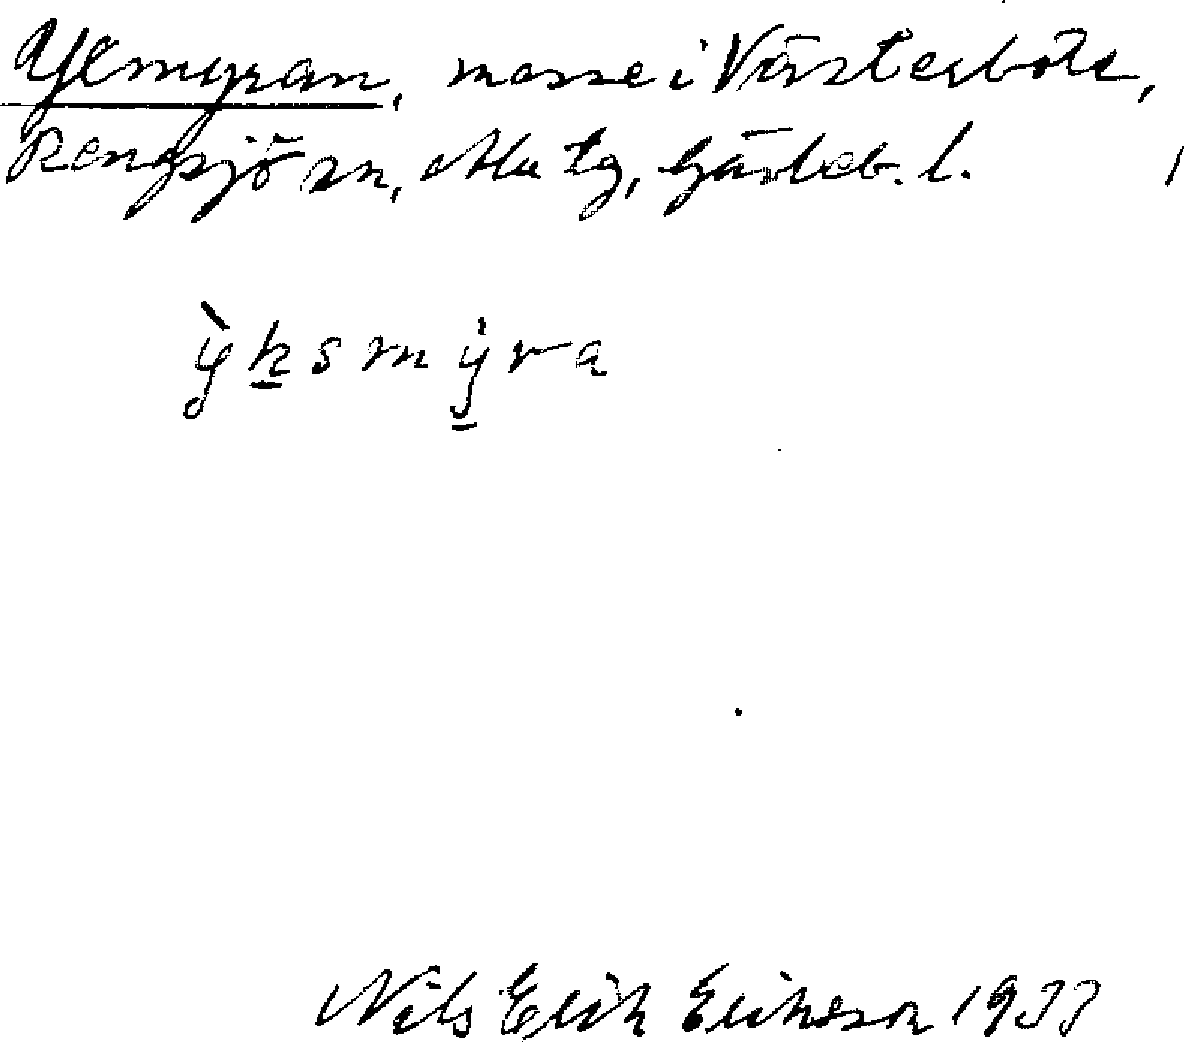 Yxmyran, mosse i Västerböle,
Rengsjö sn, Ala tg, Gävleb. l.
ỳksmýra
Nils Erik Eriksson 1933